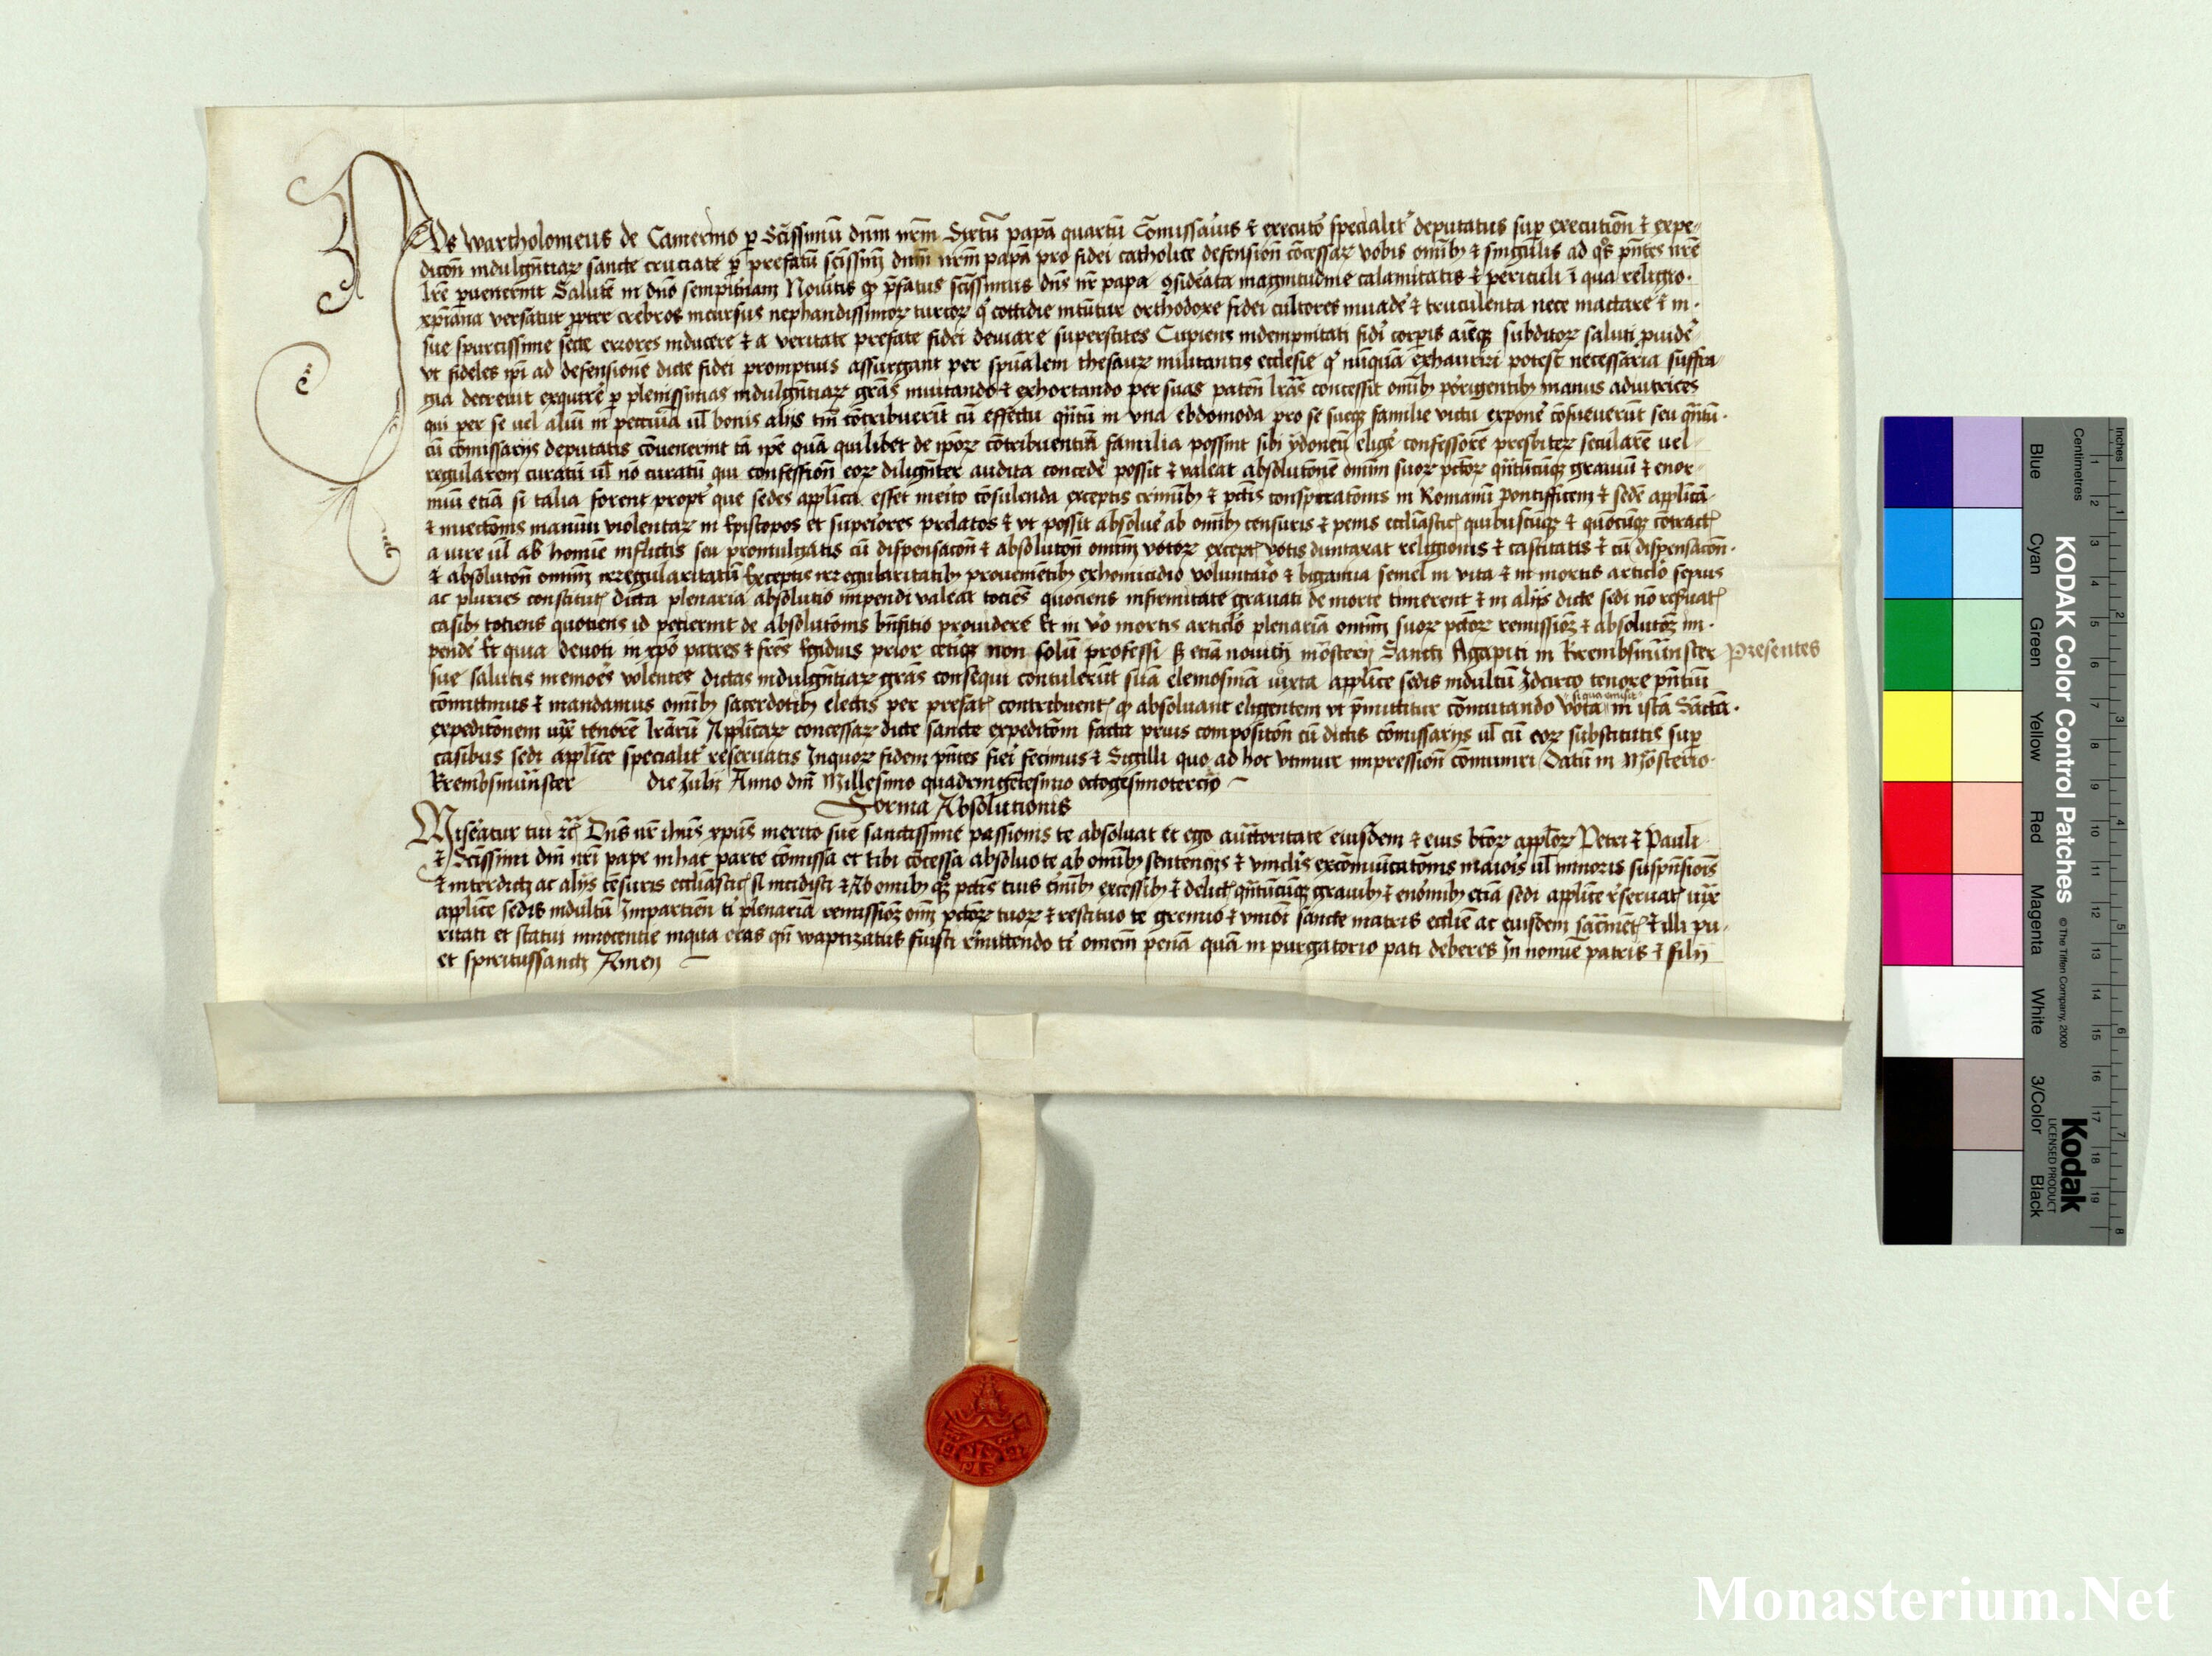 Nos wartholomeus de Camerino p̱ Sc̄issimū dn̄m nr̄m Sixtū papā quartū Cōmissaiꝰ & executor specialit' deputatus sup̱ execution̄ & expe-
dicōn indulgn̄tiaꝝ sancte cruciate p̱ prefatū sc̄issim̄ dn̄m nr̄m papā pro fidei catholice defension̄ cōcessaꝝ vobis omībꝫ & singulis ad qͦs pn̄tes nr̄e
lr̄e p̱uenerint Salutē in dn̄o sempit'nam Nouitis ꝙ p̄fatus sc̄issimus dn̄s nr̄ papa ꝯsid'ata magnitudine calamitatis & periculi ī qua religio
xp̄iana versatur ꝓpter crebros incursus nephandissimoꝝ turcoꝝ q' cottidie intūtur orthodoxe fidei cultores inuad'e & truculenta nece mactare & in
sue spurcissime secte errores inducere & a veritate prefate fidei deuiare superstites Cupiens indempnitati fid'i corporis aīeqꝫ subditoꝝ saluti ꝓuid'e
vt fideles ip̄i ad defensionē dicte fidei promptius assurgant per spūalem thesauꝝ militantis ecclesie q' nūquā exhauriri potest necessaria suffra-
gia decreuit exquir'e p̱ plenissimas indulgn̄tiaꝝ grās inuitando & exhortando per suas paten̄ lrās concessit omībꝫ porrigentibꝫ manus adiutrices
qui per se uel aliū in peccūia ul̄ bonis alijs tm̄ cōtribuerīt cū effectu qn̄tū in vna ebdomoda pro se suaqꝫ familie victu expon'e cōsueuerūt seu qn̄tū
cū comissarijs deputatis cōuenerint tā ip̄e quā quilibet de ip̄oꝝ cōtribuentiū familia possint sibi ydoneū elig'e confessorē presbiteꝝ secularē uel
regularem curatū ul̄ nō curatū qui confession̄ eoꝝ dilign̄ter audita conced'e possit & valeat absolutōnē omīm suoꝝ pctōꝝ qn̄tūcūqꝫ grauiū & enor-
miū etiā si talia forent propt' que sedes applīca esset merito cōsulenda exceptis criminibꝫ & pctīs conspiratōnis in Romanū pontifficem & sedē applīcā
& iniectōnis manuū violentaꝝ in Episcopos et superiores prelatos & vt possit absolu'e ab omībꝫ censuris & penis eccl̄iasticꝭ quibuscūqꝫ & quōcūqꝫ cōtractꝭ
a iure ul̄ ab homīe inflictis seu promulgatis cū dispensacōn & absolutōn omīm votoꝝ exceptꝭ votis duntaxat religionis & castitatis & cū dispensacōn
& absolutōn omīm irregularitatū Exceptis irregularitatibꝫ prouenietībꝫ exhomicidio voluntario & bigamia semel in vita & in mortis articlo sepius
ac pluries constitutꝭ dicta plenaria absolutio impendi valeat tociēs quociens infirmitate grauati de morte timerent & in alijs dicte sedi nō res'uatꝭ
casibꝫ totiens quotiens id petierint de absolutōnis bn̄fitio prouidere Et in v'o mortis articlo plenariā omīm suoꝝ pctōꝝ remissioꝫ & absolutōꝫ im-
pend'e Et quia deuoti in xp̄o patres & frēs Egidius prior cetiqꝫ non solū professi sꝫ etiā nouitij mōsterij Sancti Agapiti in Krembsmūnster presentes
sue salutis memores volentes dictas indulgn̄tiaꝝ grās consequi contulerūt suā elemosinā iuxta applīce sedis indultū Idcirco tenore pn̄tiū
cōmittimus & mandamus omībꝫ sacerdotibꝫ electis per prefatꝭ contribuentꝭ ꝙ absoluant eligentem vt p̄mittitur cōmutando vota si qua emisit in istā Sāctā
expeditōnem iux̄ tenorē lrārū Applīcaꝝ concessaꝝ dicte sancte expeditōni facta prius compositōn cū dictis cōmissarijs ul̄ cū eoꝝ substitutis sup̱
casibus sedi applīce specialit' reseruatis Inquoꝝ fidem pn̄tes fieri fecimus & Sigilli quo ad hoc vtimur impression̄ cōmuniri Datū in Mōsterio
Krembsmūnster die Julij Anno dn̄i Millesimo quadringētesimo octogesimotercio
Forma Absolutionis
Miser'eatur tui ꝛc̄ Dn̄s nr̄ ihūs xpūs merito sue sanctissime passionis te absoluat Et ego auctoritate eiusdem & eius btōꝝ applōꝝ Petri & Pauli
& Sc̄issimi dn̄i nr̄i pape inhac parte cōmissa et tibi cōcessa absoluo te ab omībꝫ sentencijs & vinclis excōmunicatōnis maioris ul̄ minoris suspēnsiois
& interdicti ac alijs cēsuris eccl̄iasticꝭ si incidisti & Ab omibꝫ qꝫ pctīs tuis crīnībꝫ excessibꝫ & delictꝭ qn̄tūcūqꝫ grauibꝫ & enormībꝫ etiā sedi applīce r'seruatꝭ iux̄
applīce sedis indultū Impartien̄ ti' plenariā remissioꝫ oīm pctōꝝ tuoꝝ & restituo te gremio & vnioī sancte matris eccl̄ie ac eiusdem sacrāmētꝭ & illi pu-
ritati et statui innocentie inqua eras qn̄ waptizatus fuisti r'mittendo ti' omem̄ penā quā in purgatorio pati deberes In nomīe patris & filij
et spiritussancti Amen
KODAK Color Control Patches © The Tiffen Company, 2000
Kodak
LICENSED PRODUCT
Inches
Centimetres
Blue Cyan Green Yellow Red Magenta White 3/Color Black
1 2 3 4 5 6 7 8 9 10 11 12 13 14 15 16 17 18 19
1 2 3 4 5 6 7 8
Monasterium.Net